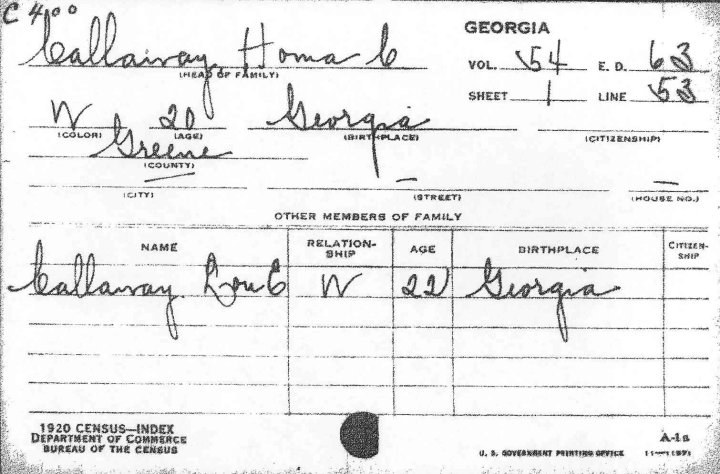 C 400
GEORGIA
Callaway, Homa C
(HEAD OF FAMILY)
VOL. 54 E. D. 63
SHEET 1 LINE 53
W 20 Georgia
(COLOR) (AGE) (BIRTHPLACE) (CITIZENSHIP)
Greene
(COUNTY)
(CITY) (STREET) (HOUSE NO.)
OTHER MEMBERS OF FAMILY
NAME RELATION-SHIP AGE BIRTHPLACE CITIZEN-SHIP
Callaway Lou E W 22 Georgia
1920 CENSUS—INDEX
DEPARTMENT OF COMMERCE
BUREAU OF THE CENSUS
A-1a
U. S. GOVERNMENT PRINTING OFFICE